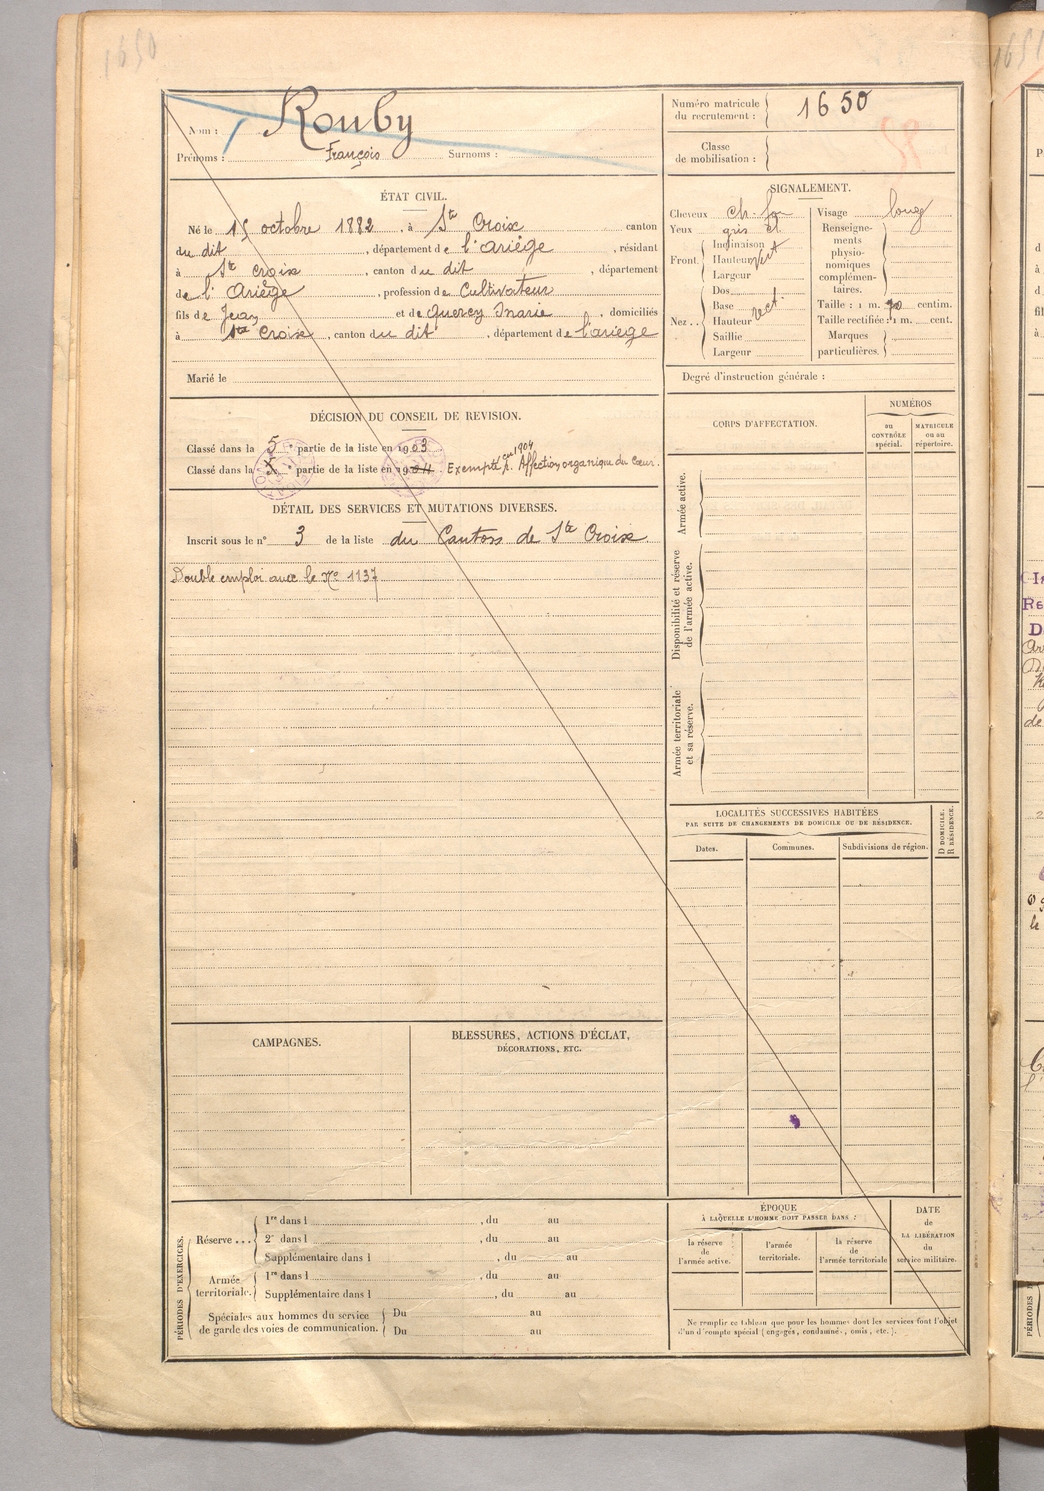 1650
Nom : Rouby
Prénoms : François Surnoms :
Numéro matricule
du recrutement : 1650
Classe
de mobilisation :
58
ÉTAT CIVIL.
Né le 15 octobre 1882, à Ste Croix canton
du dit, département de l'Ariège, résidant
à Ste Croix, canton du dit, département
de l'Ariège, profession de Cultivateur
fils de Jean et de Quercy Marie, domiciliés
à Ste Croix, canton du dit, département de l'ariège
Marié le
SIGNALEMENT.
Cheveux ch. fon
Yeux gris cl.
Front. Inclinaison
Hauteur vert
Largeur
Nez.. Dos
Base
Hauteur rect.
Saillie
Largeur
Visage long
Renseigne-
ments
physio-
nomiques
complémen-
taires.
Taille : 1 m. 70 centim.
Taille rectifiée : 1 m. cent.
Marques
particulières.
Degré d'instruction générale :
DÉCISION DU CONSEIL DE REVISION.
Classé dans la 5e partie de la liste en 1903
Classé dans la partie de la liste en 1904. Exempté en 1904. Affection organique du Cœur.
DÉTAIL DES SERVICES ET MUTATIONS DIVERSES.
Inscrit sous le n° 3 de la liste du Canton de Ste Croix
Double emploi avec le No 1137
CORPS D'AFFECTATION.
NUMÉROS
au
CONTRÔLE
spécial.
MATRICULE
ou au
répertoire.
Armée active.
Disponibilité et réserve
de l'armée active.
Armée territoriale
et sa réserve.
LOCALITÉS SUCCESSIVES HABITÉES
PAR SUITE DE CHANGEMENTS DE DOMICILE OU DE RÉSIDENCE.
D DOMICILE.
R RÉSIDENCE.
Dates.
Communes.
Subdivisions de région.
CAMPAGNES.
BLESSURES, ACTIONS D'ÉCLAT,
DÉCORATIONS, ETC.
PÉRIODES D'EXERCICES.
Réserve... 1re dans l , du au
2e dans l , du au
Supplémentaire dans l , du au
Armée
territoriale. 1re dans l , du au
Supplémentaire dans l , du au
Spéciales aux hommes du service
de garde des voies de communication. Du au
Du au
ÉPOQUE
À LAQUELLE L'HOMME DOIT PASSER DANS :
la réserve
de
l'armée active.
l'armée
territoriale.
la réserve
de
l'armée territoriale
DATE
de
LA LIBÉRATION
du
service militaire.
Ne remplir ce tableau que pour les hommes dont les services font l'objet
d'un décompte spécial (engagés, condamnés, omis, etc.).